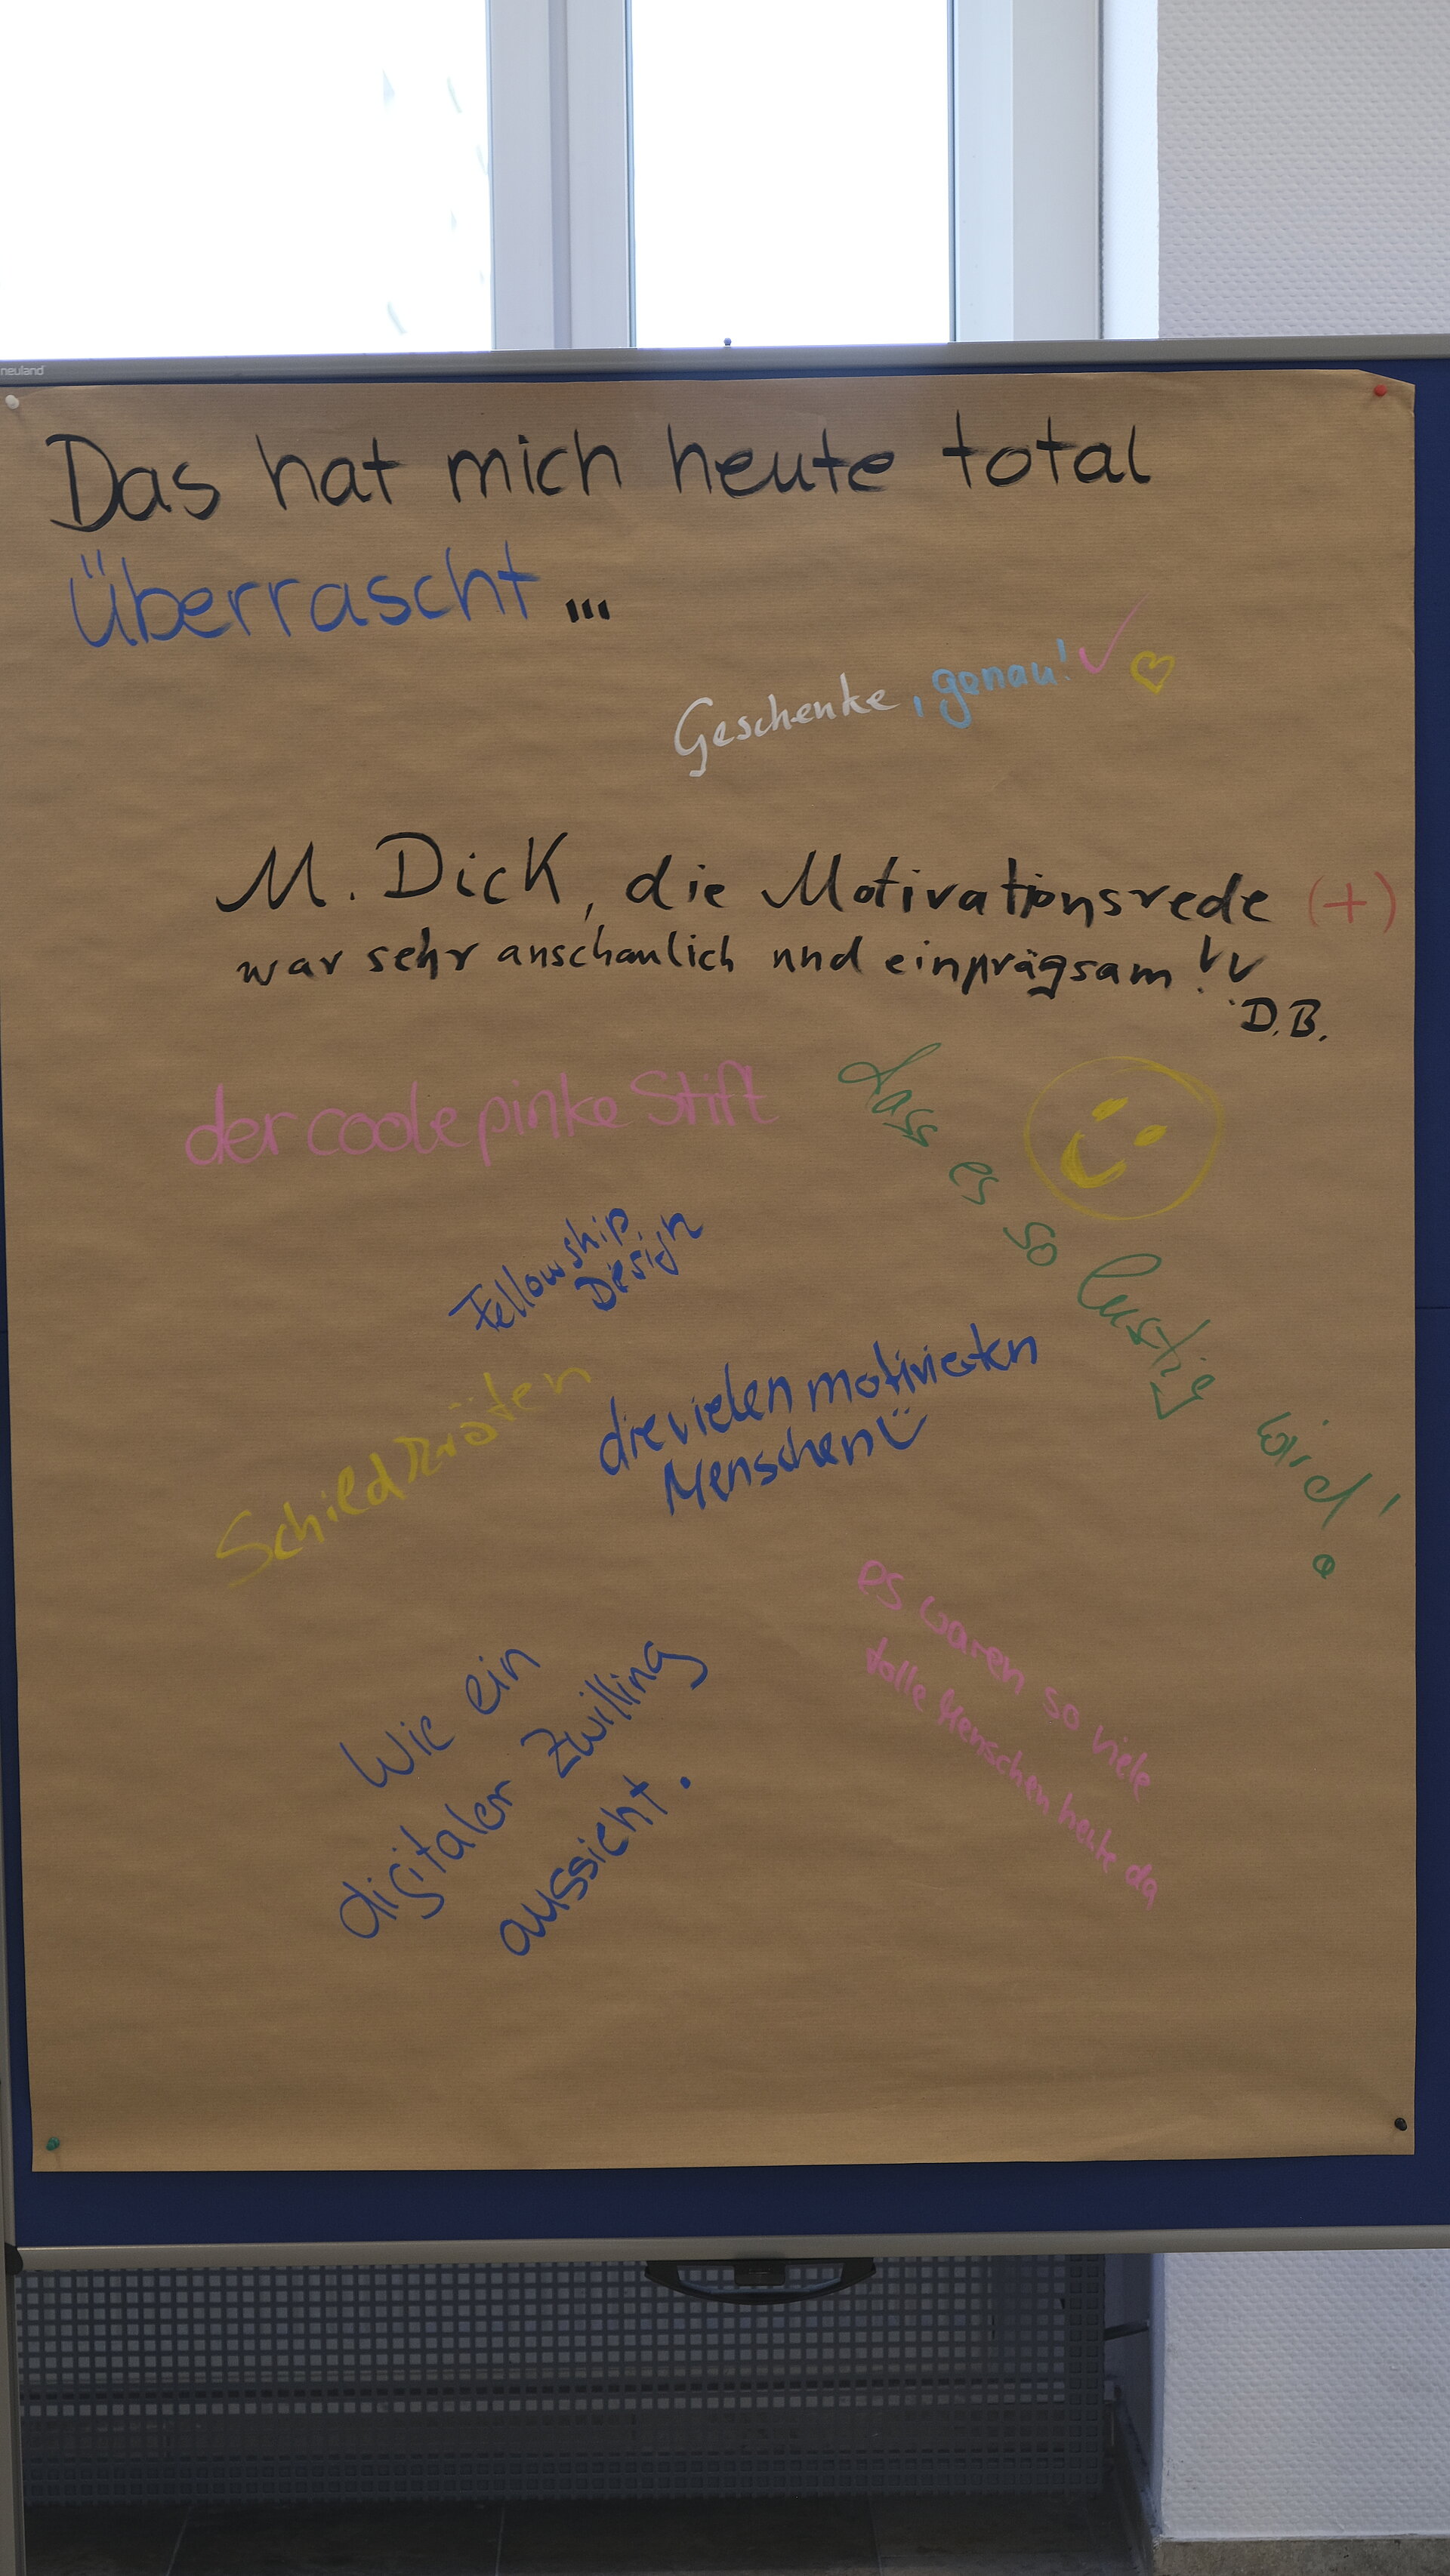 neuland
Das hat mich heute total
überrascht...
Geschenke, genau!
M. Dick, die Motivationsrede (+)
war sehr anschaulich und einprägsam!
D.B.
der coole pinke Stift
dass es so lustig wird!
Fellowship
Design
Schildkröten
die vielen motivierten
Menschen
es waren so viele
tolle Menschen heute da
Wie ein
digitaler Zwilling
aussieht.